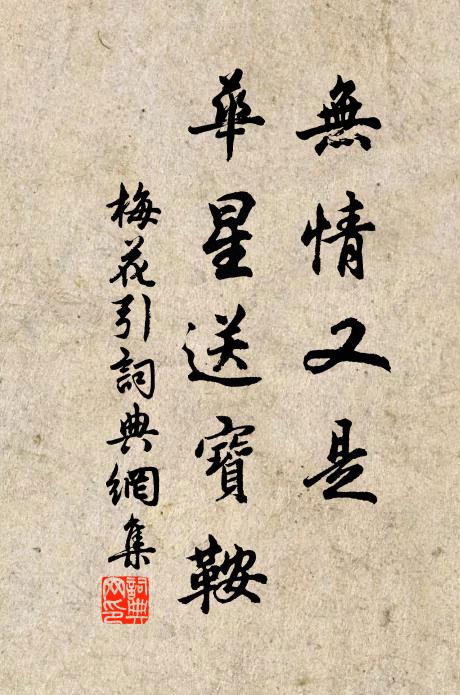 無情又是
華星送寶鞍
梅花引詞典網集
詞典
网印